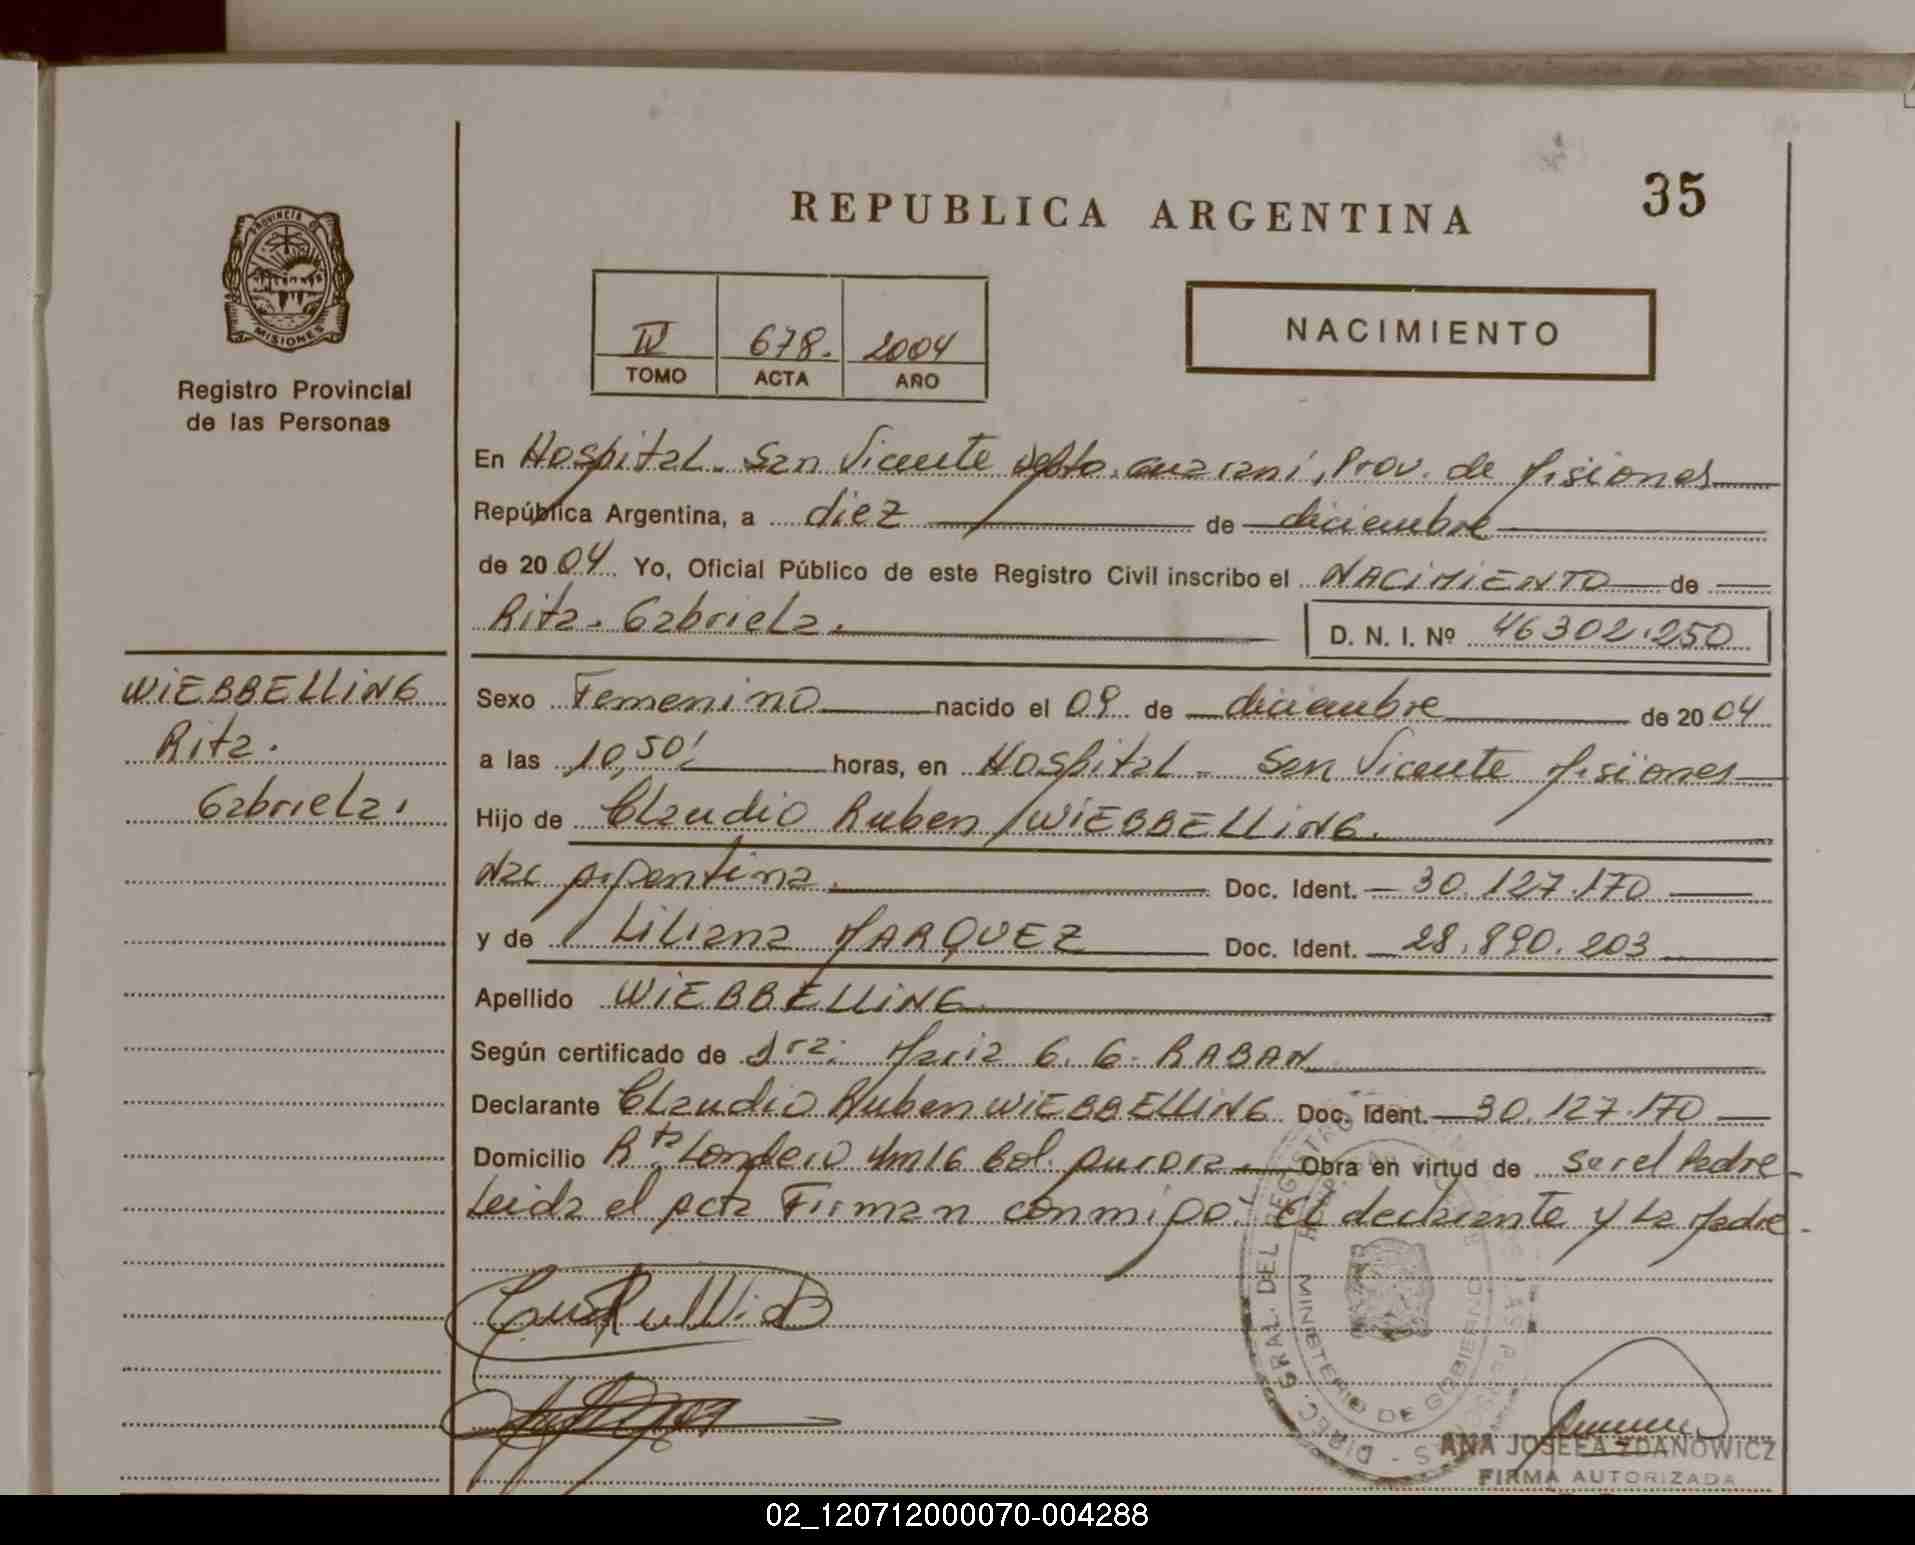 35
REPUBLICA ARGENTINA
PROVINCIA
MISIONES
Registro Provincial
de las Personas
IV 678. 2004
TOMO ACTA AÑO
NACIMIENTO
En Hospital - San Vicente Depto. Guaraní, Prov. de Misiones
República Argentina, a diez de diciembre
de 2004 Yo, Oficial Público de este Registro Civil inscribo el NACIMIENTO de
Rita. Gabriela.
D. N. I. Nº 46302.250
WIEBBELLING
Rita.
Gabriela.
Sexo Femenino nacido el 09 de diciembre de 2004
a las 10,50' horas, en Hospital - San Vicente Misiones
Hijo de Claudio Ruben WIEBBELLING.
Nac Argentina. Doc. Ident. 30.127.170
y de Liliana MARQUEZ Doc. Ident. 28.890.203
Apellido WIEBBELLING
Según certificado de Dra: Maria G. G. RABAN
Declarante Claudio Ruben WIEBBELLING Doc. Ident. 30.127.170
Domicilio Rta Londero Km16 Col. Aurora. Obra en virtud de ser el Padre
Leida el acta Firman conmigo El declarante y La Madre.
DIREC. GRAL. DEL REGISTRO
MINISTERIO DE GOBIERNO
ANA JOSEFA ZDANOWICZ
FIRMA AUTORIZADA
02_120712000070-004288